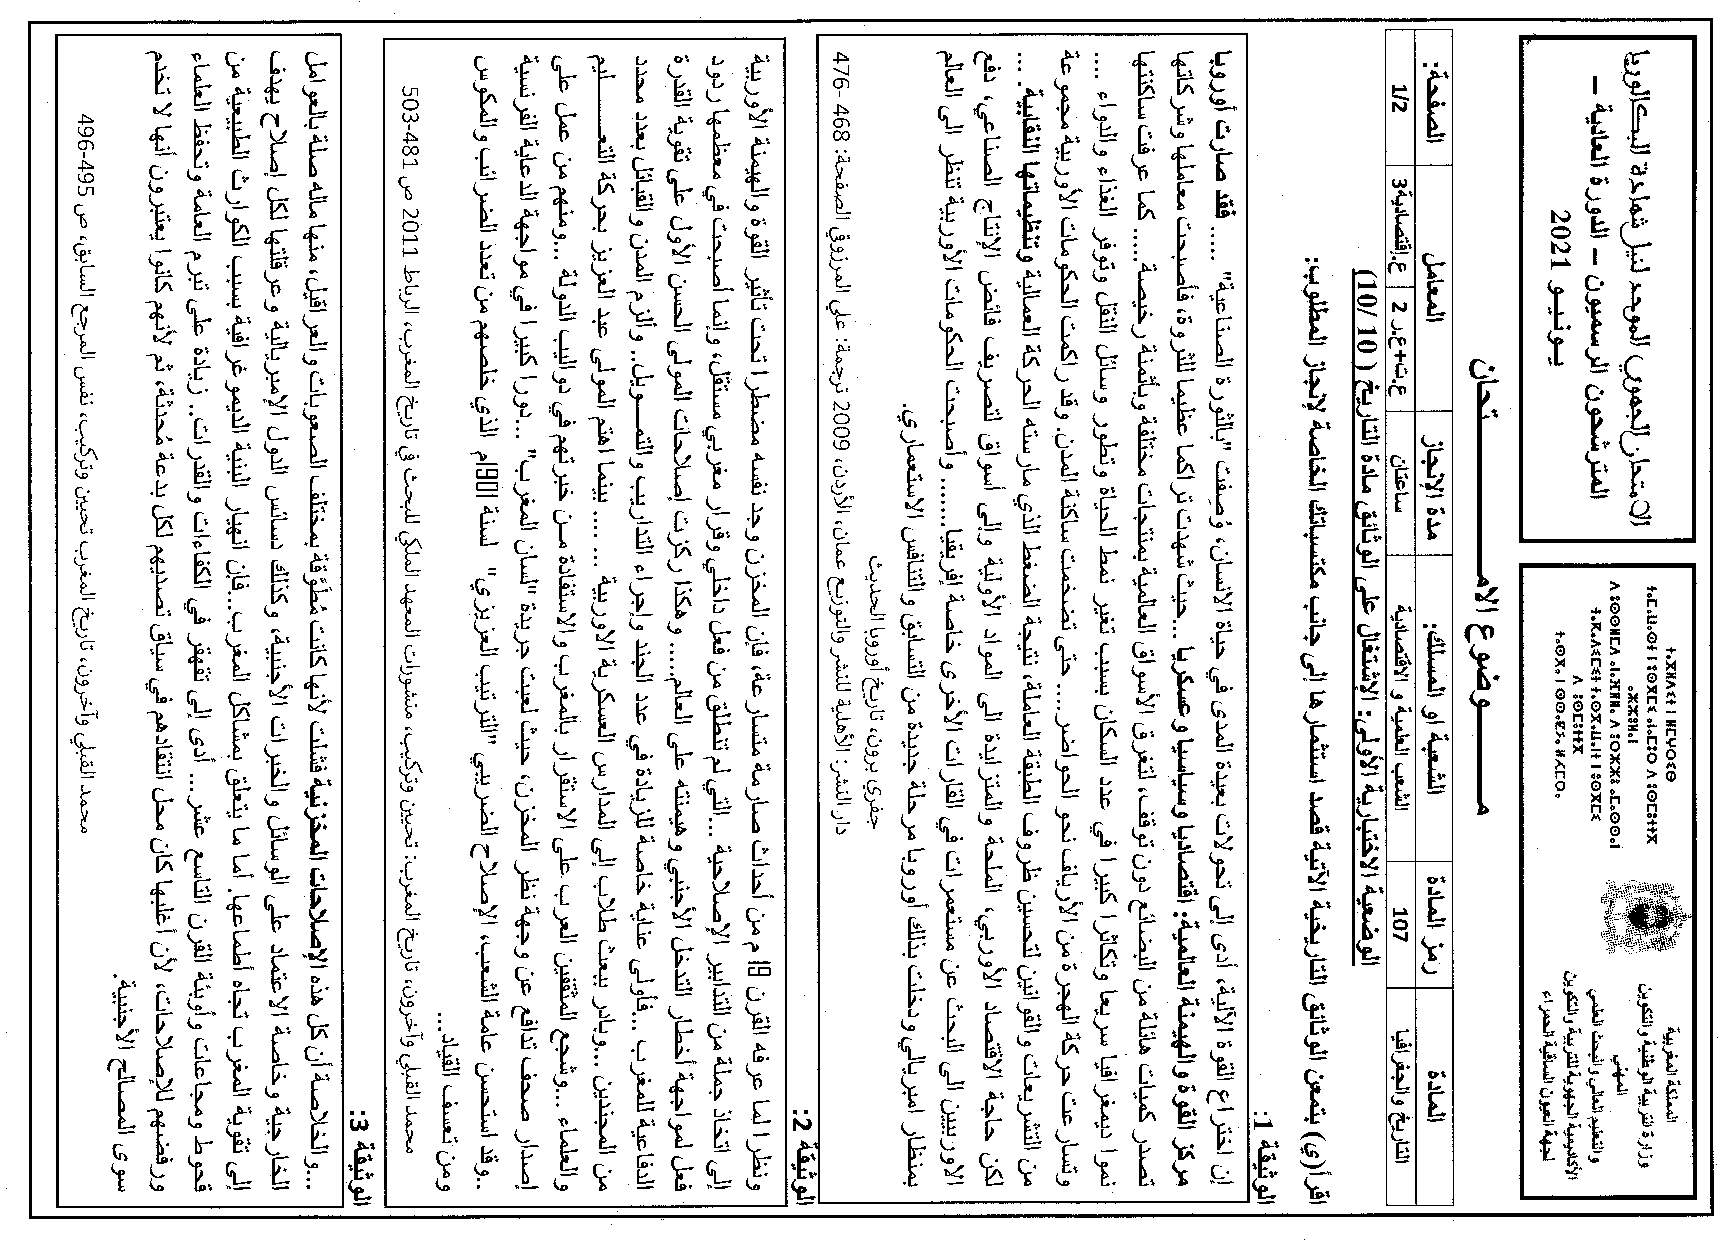 المملكة المغربية
وزارة التربية الوطنية والتكوين
المهني
والتعليم العالي والبحث العلمي
الأكاديمية الجهوية للتربية والتكوين
لجهة العيون الساقية الحمراء
الامتحان الجهوي الموحد لنيل شهادة البكالوريا
المترشحون الرسميون – الدورة العادية –
يونيو 2021
مــــوضوع الامـــــــتحان
المادة
رمز المادة
الشعبة او المسلك:
مدة الإنجاز
المعامل
الصفحة:
التاريخ والجغرافيا
107
الشعب العلمية و الاقتصادية
ساعتان
ع.ت+ع.ر 2
ع.إقتصادية3
1/2
الوضعية الاختبارية الأولى: الإشتغال على الوثائق مادة التاريخ ( 10/ 10)
اقرأ(ي) بتمعن الوثائق التاريخية الآتية قصد استثمارها إلى جانب مكتسباتك الخاصة لإنجاز المطلوب:
الوثيقة 1:
إن اختراع القوة الآلية، أدى إلى تحولات بعيدة المدى في حياة الانسان، وُصِفت "بالثورة الصناعية" ..... فقد صارت أوروبا
مركز القوة والهيمنة العالمية: إقتصاديا وسياسيا وعسكريا ...حيث شهدت تراكما عظيما للثروة، فأصبحت معاملها وشركاتها
تصدر كميات هائلة من البضائع دون توقف، لتغرق الأسواق العالمية بمنتجات مختلفة وبأثمنة رخيصة..... كما عرفت ساكنتها
نموا ديمغرافيا سريعا وتكاثرا كبيرا في عدد السكان بسبب تغير نمط الحياة وتطور وسائل النقل وتوفر الغذاء والدواء ....
وتسارعت حركة الهجرة من الأرياف نحو الحواضر.... حتى تضخمت ساكنة المدن. وقد راكمت الحكومات الأوربية مجموعة
من التشريعات والقوانين لتحسين ظروف الطبقة العاملة، نتيجة الضغط الذي مارسته الحركة العمالية وتنظيماتها النقابية. ...
لكن حاجة الاقتصاد الأوربي، الملحة والمتزايدة الى المواد الأولية وإلى أسواق لتصريف فائض الإنتاج الصناعي، دفع
الاوربيين الى البحث عن مستعمرات في القارات الأخرى خاصة إفريقيا....... وأصبحت الحكومات الأوربية تنظر الى العالم
بمنظار امبريالي ودخلت بذلك أوروبا مرحلة جديدة من التسابق والتنافس الاستعماري.
جفري برون، تاريخ أوروبا الحديث
دار النشر: الأهلية للنشر والتوزيع عمان، الأردن، 2009 ترجمة: علي المرزوقي الصفحة: 468 -476
الوثيقة 2:
ونظرا لما عرفه القرن 19م من أحداث صارمة متسارعة، فإن المخزن وجد نفسه مضطرا تحت تأثير القوة والهيمنة الأوربية
إلى اتخاذ جملة من التدابير الإصلاحية ...التي لم تنطلق من فعل داخلي وقرار مغربي مستقل، وإنما أصبحت في معظمها ردود
فعل لمواجهة أخطار التدخل الأجنبي وهيمنته على العالم..... وهكذا ركزت إصلاحات المولى الحسن الأول على تقوية القدرة
الدفاعية للمغرب ...فأولى عناية خاصة للزيادة في عدد الجند وإجراء التداريب والتمــويل.. وألزم المدن والقبائل بعدد محدد
من المجندين ...وبادر ببعث طلاب إلى المدارس العسكرية الاوربية ... .... بينما اهتم المولى عبد العزيز بحركة التعـــــليم
والعلماء ...وشجع المثقفين العرب على الاستقرار بالمغرب والاستفادة من خبرتهم في دواليب الدولة ...ومنهم من عمل على
إصدار صحف تدافع عن وجهة نظر المخزن، حيث لعبت جريدة "لسان المغرب" ...دورا كبيرا في مواجهة الدعاية الفرنسية
..وقد استحسن عامة الشعب، الإصلاح الضريبي "الترتيب العزيزي" لسنة 1901م الذي خلصهم من تعدد الضرائب والمكوس
ومن تعسف القياد...
محمد القبلي وآخرون، تاريخ المغرب: تحيين وتركيب، منشورات المعهد الملكي للبحث في تاريخ المغرب، الرباط 2011 ص 481-503
الوثيقة 3:
...والخلاصة أن كل هذه الإصلاحات المخزنية فشلت لأنها كانت مُطوَّقة بمختلف الصعوبات والعراقيل، منها ماله صلة بالعوامل
الخارجية وخاصة الاعتماد على الوسائل والخبرات الأجنبية، وكذلك دسائس الدول الإمبريالية وعرقلتها لكل إصلاح يهدف
إلى تقوية المغرب تجاه أطماعها. أما ما يتعلق بمشاكل المغرب...فإن انهيار البنية الديموغرافية بسبب الكوارث الطبيعية من
قحوط ومجاعات وأوبئة القرن التاسع عشر... أدى إلى تقهقر في الكفاءات والقدرات.. زيادة على تبرم العامة وتحفظ العلماء
ورفضهم للإصلاحات، لأن أغلبها كان محل انتقادهم في سياق تصديهم لكل بدعة مُحدثة، ثم لأنهم كانوا يعتبرون أنها لا تخدم
سوى المصالح الأجنبية.
محمد القبلي وآخرون، تاريخ المغرب تحيين وتركيب، نفس المرجع السابق، ص 495-496